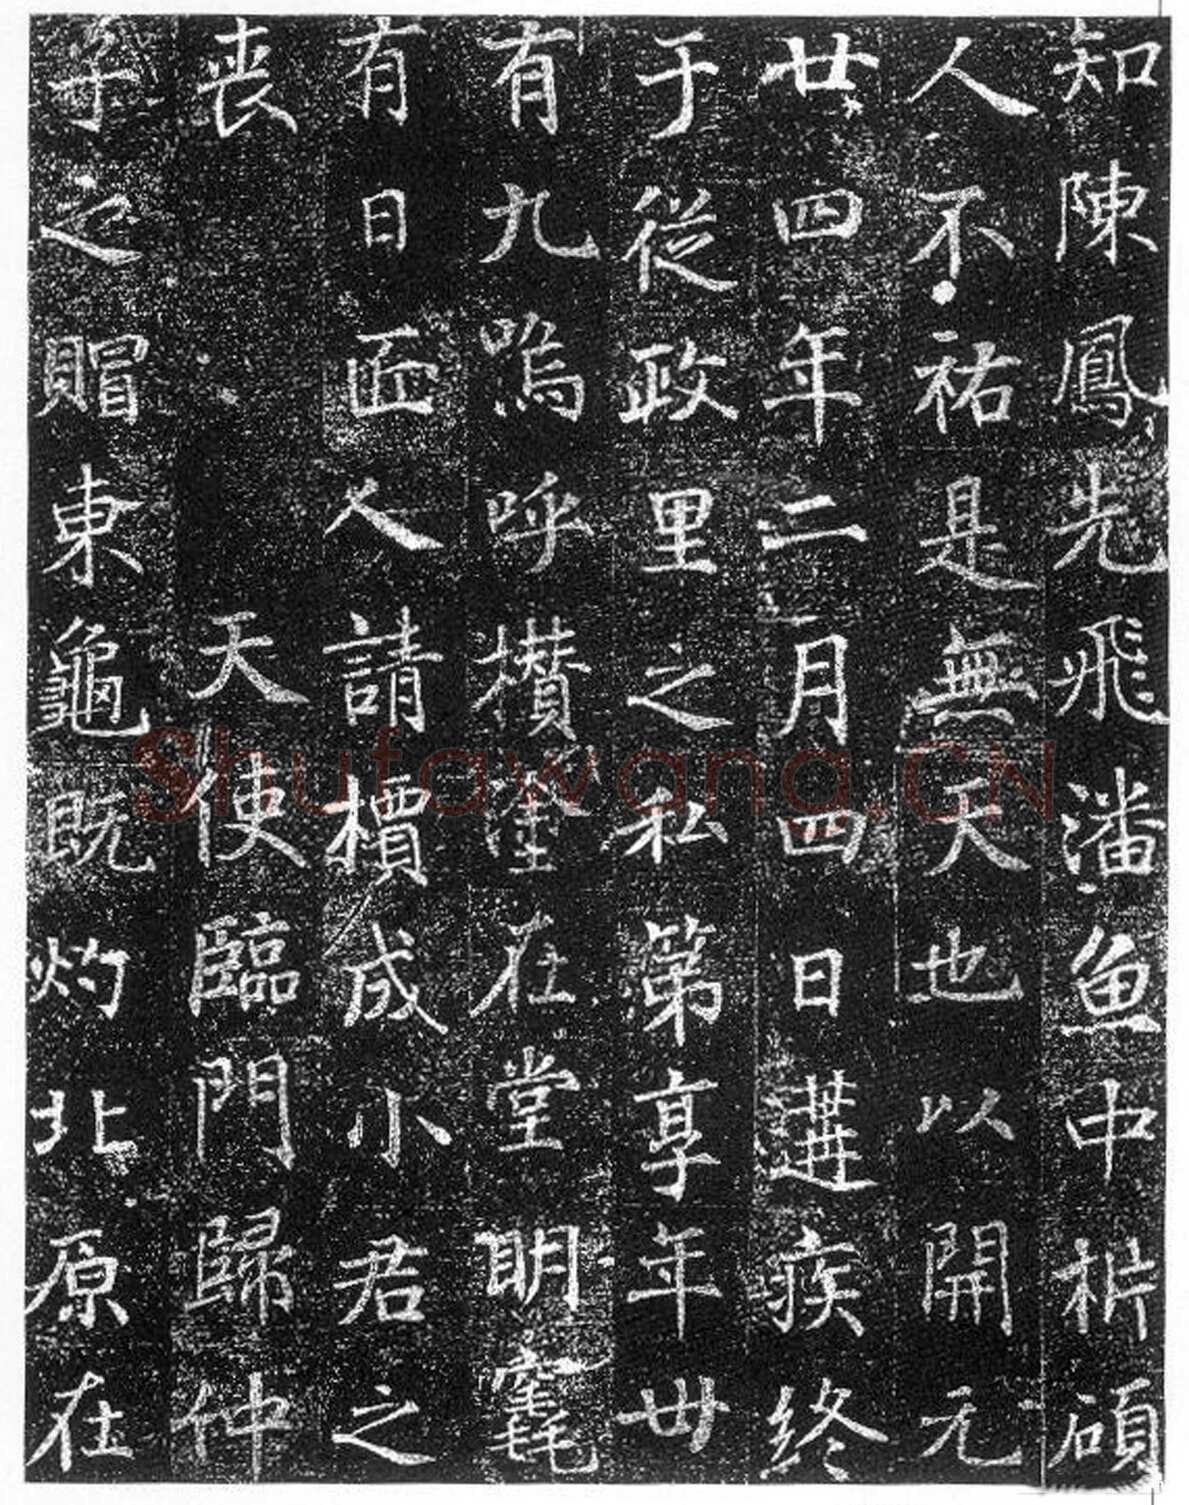 知陳鳳先飛潘魚中析碩
人不祐是無天也以開元
廿四年二月四日遘疾終
于從政里之私第享年卌
有九嗚呼攢塗在堂明毫
有日匠人請檟成小君之
喪 天使臨門歸仲
子之賵東龜既灼北原在
Shufawang.CN